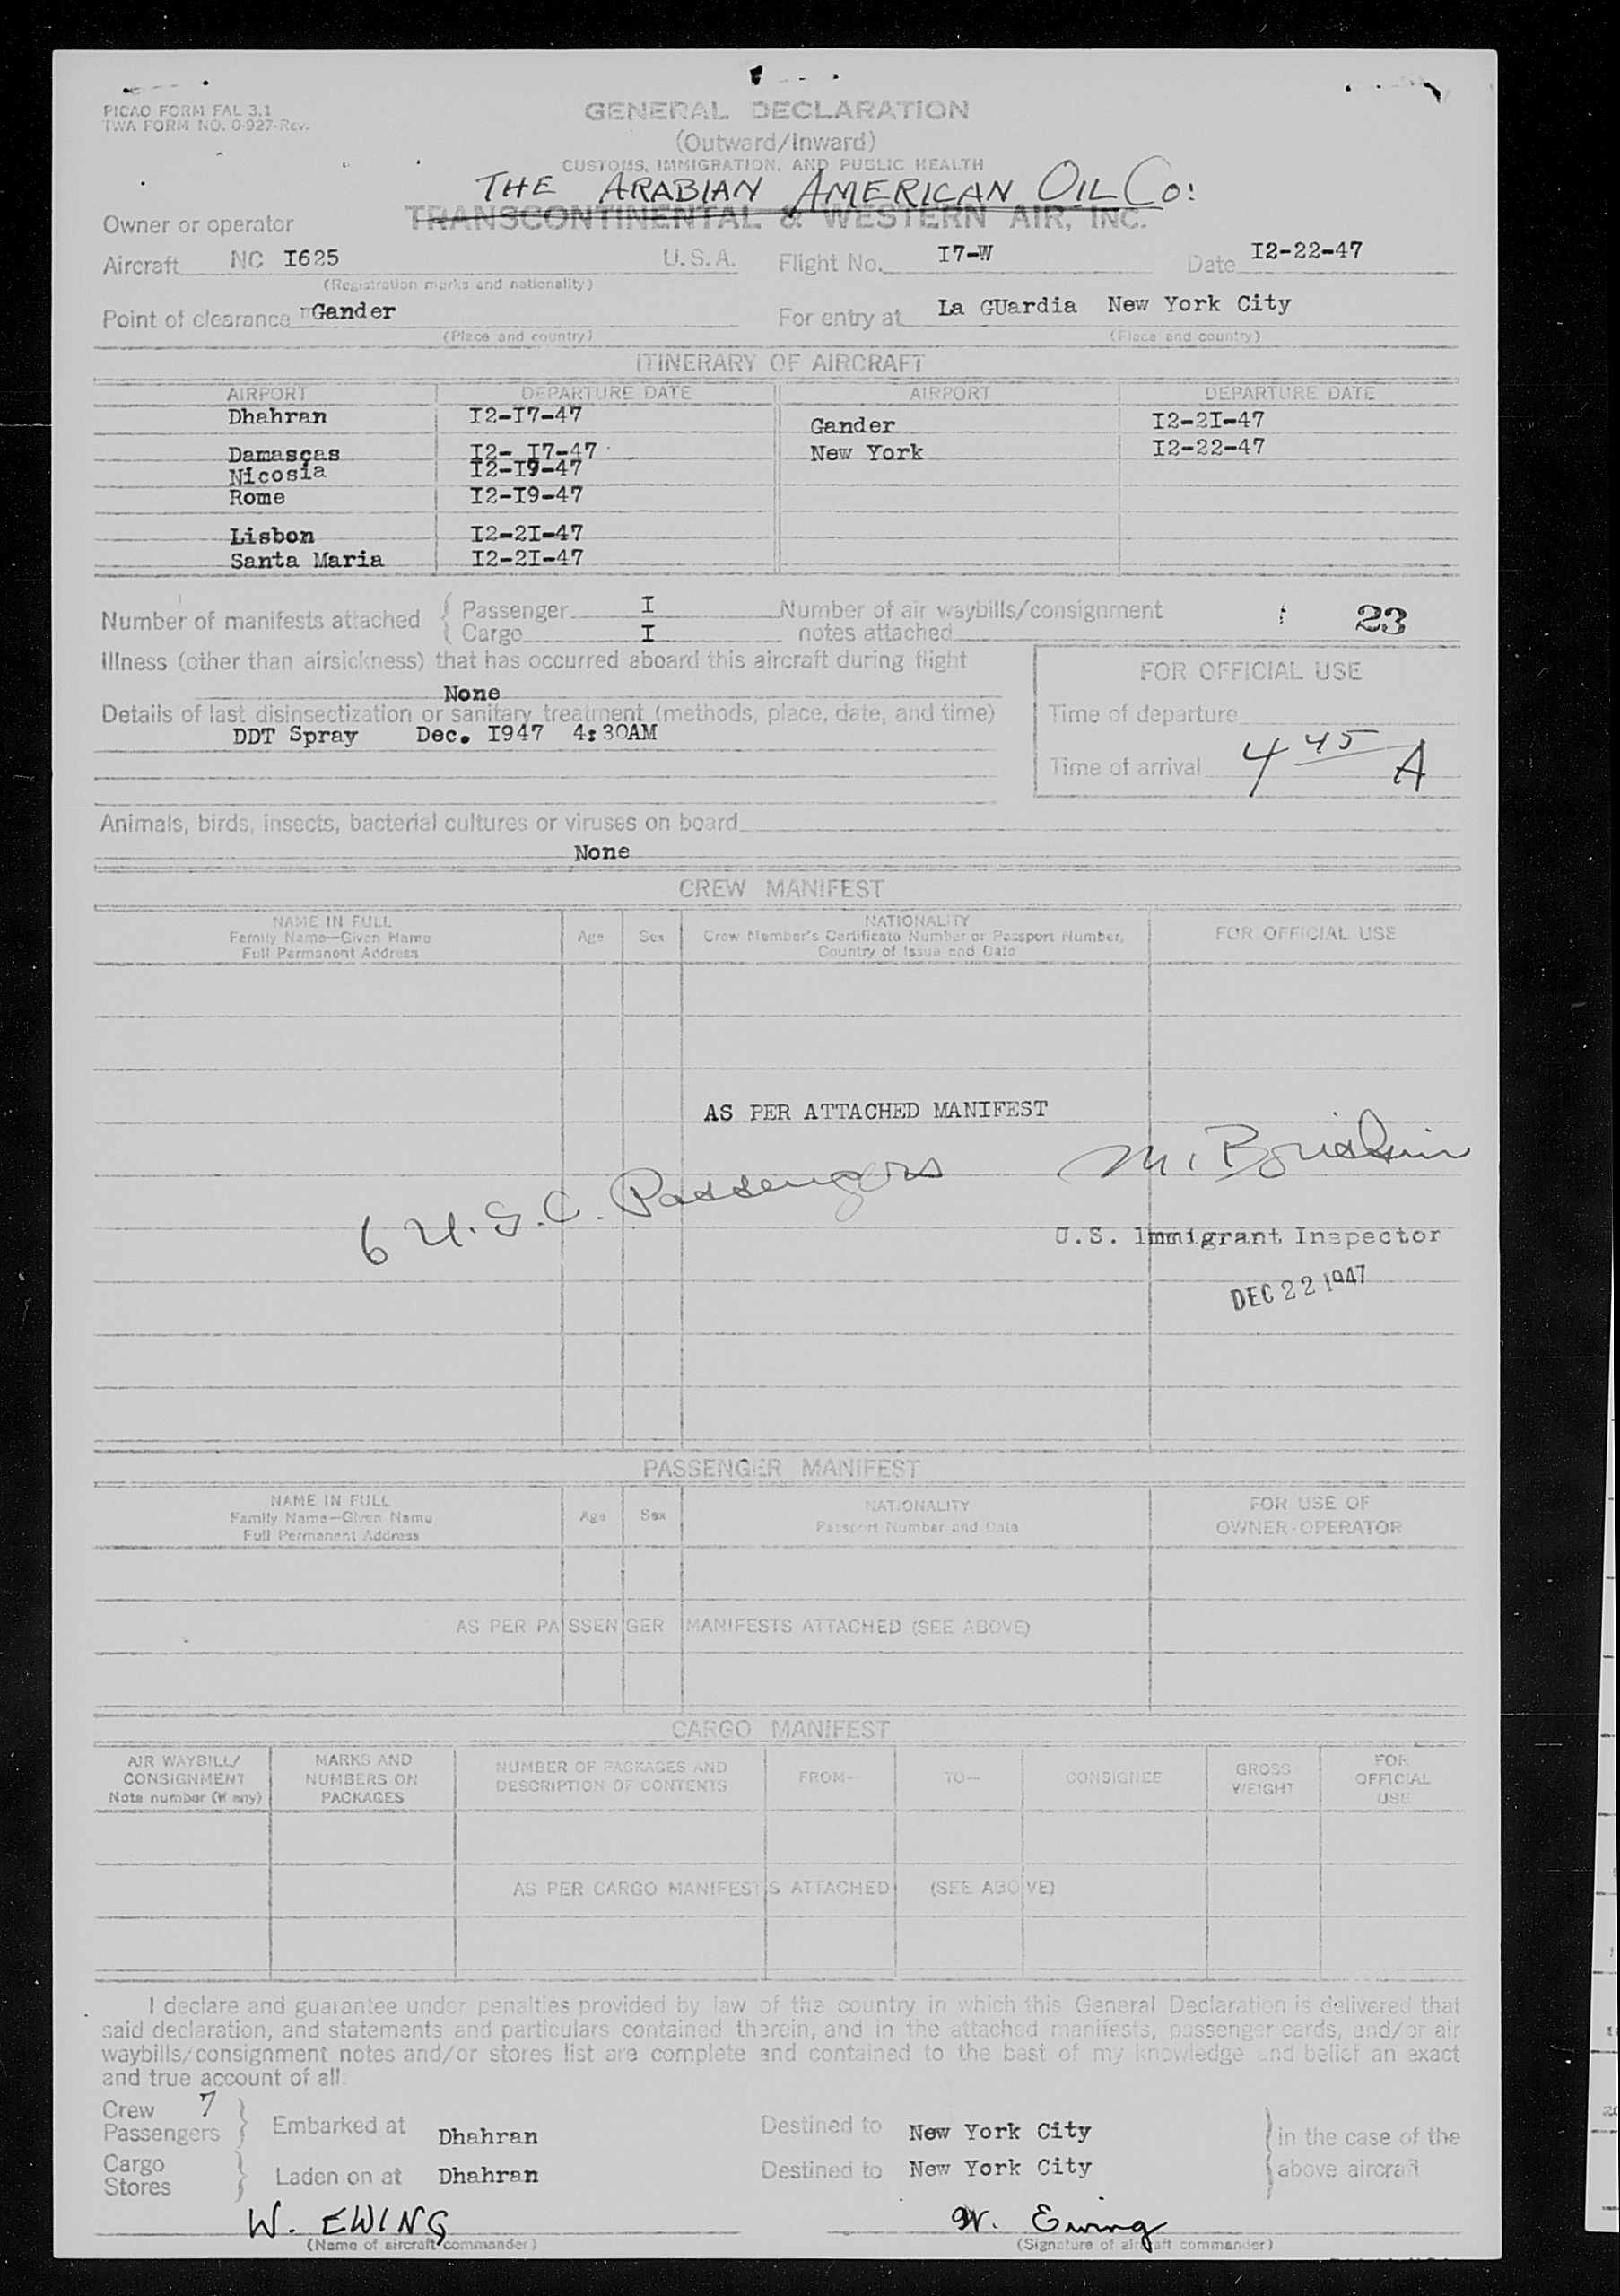 PICAO FORM FAL 3.1
TWA FORM NO. 0-927-Rev.
GENERAL DECLARATION
(Outward/Inward)
CUSTOMS, IMMIGRATION, AND PUBLIC HEALTH
THE ARABIAN AMERICAN OIL Co:
Owner or operator TRANSCONTINENTAL & WESTERN AIR, INC.
Aircraft NC I625 U.S.A. Flight No. I7-W Date I2-22-47
(Registration marks and nationality)
Point of clearance Gander For entry at La GUardia New York City
(Place and country) (Place and country)
ITINERARY OF AIRCRAFT
AIRPORT DEPARTURE DATE AIRPORT DEPARTURE DATE
Dhahran I2-I7-47 Gander I2-2I-47
Damascas I2- I7-47 New York I2-22-47
Nicosia I2-I9-47
Rome I2-I9-47
Lisbon I2-2I-47
Santa Maria I2-2I-47
Number of manifests attached { Passenger I Number of air waybills/consignment : 23
Cargo I notes attached
Illness (other than airsickness) that has occurred aboard this aircraft during flight
None
FOR OFFICIAL USE
Details of last disinsectization or sanitary treatment (methods, place, date, and time)
DDT Spray Dec. I947 4:30AM
Time of departure
Time of arrival 4 45 A
Animals, birds, insects, bacterial cultures or viruses on board
None
CREW MANIFEST
NAME IN FULL
Family Name—Given Name
Full Permanent Address
Age Sex
NATIONALITY
Crew Member's Certificate Number or Passport Number,
Country of Issue and Date
FOR OFFICIAL USE
AS PER ATTACHED MANIFEST
6 U.S.C. Passengers M.
U.S. Immigrant Inspector
DEC 22 1947
PASSENGER MANIFEST
NAME IN FULL
Family Name—Given Name
Full Permanent Address
Age Sex
NATIONALITY
Passport Number and Date
FOR USE OF
OWNER-OPERATOR
AS PER PASSENGER MANIFESTS ATTACHED (SEE ABOVE)
CARGO MANIFEST
AIR WAYBILL/
CONSIGNMENT
Note number (if any)
MARKS AND
NUMBERS ON
PACKAGES
NUMBER OF PACKAGES AND
DESCRIPTION OF CONTENTS
FROM—
TO—
CONSIGNEE
GROSS
WEIGHT
FOR
OFFICIAL
USE
AS PER CARGO MANIFESTS ATTACHED (SEE ABOVE)
I declare and guarantee under penalties provided by law of the country in which this General Declaration is delivered that
said declaration, and statements and particulars contained therein, and in the attached manifests, passenger cards, and/or air
waybills/consignment notes and/or stores list are complete and contained to the best of my knowledge and belief an exact
and true account of all.
Crew 7
Passengers } Embarked at Dhahran Destined to New York City } in the case of the
Cargo
Stores } Laden on at Dhahran Destined to New York City above aircraft
W. EWING W. Ewing
(Name of aircraft commander) (Signature of aircraft commander)